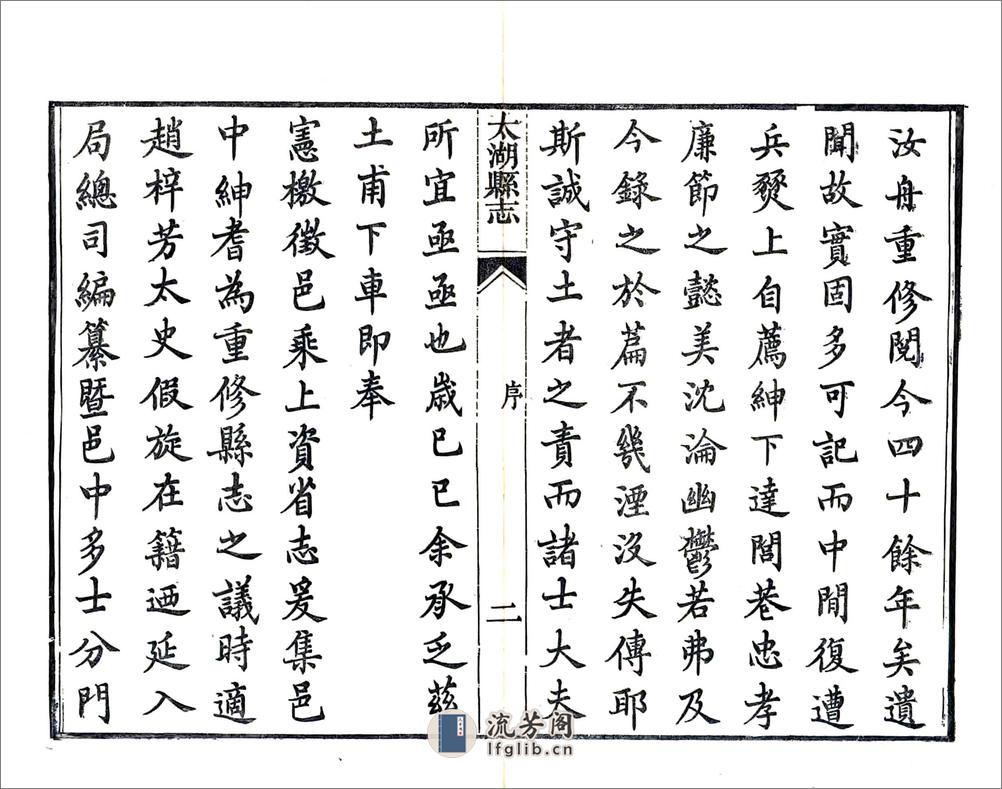 汝舟重修閱今四十餘年矣遺
聞故實固多可記而中間復遭
兵燹上自薦紳下達閭巷忠孝
廉節之懿美沈淪幽鬱若弗及
今錄之於篇不幾湮沒失傳耶
斯誠守土者之責而諸士大夫
太湖縣志
序
二
所宜亟亟也歲己巳余承乏茲
土甫下車即奉
憲檄徵邑乘上資省志爰集邑
中紳耆為重修縣志之議時適
趙梓芳太史假旋在籍迺延入
局總司編纂暨邑中多士分門
流芳阁
lfglib.cn